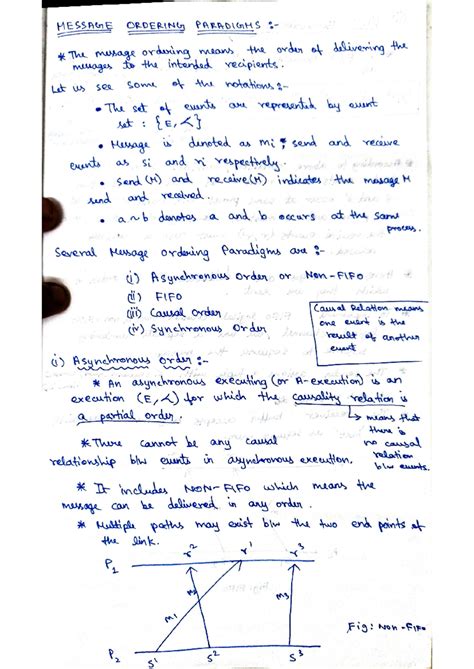 MESSAGE ORDERING PARADIGMS :-
* The message ordering means the order of delivering the
messages to the intended recipients.
Let us see some of the notations :-
• The set of events are represented by event
set : {E, ≺}
• Message is denoted as mi ; send and receive
events as si and ri respectively.
• Send (M) and receive (M) indicates the message M
send and received.
• a ~ b denotes a and b occurs at the same
process.
Several Message ordering Paradigms are :-
(i) Asynchronous Order or NON-FIFO
(ii) FIFO
(iii) Causal Order
(iv) Synchronous Order
Causal Relation means
one event is the
result of another
event
(i) Asynchronous Order :-
* An asynchronous executing (or A-execution) is an
execution (E, ≺) for which the causality relation is
a partial order.
→ means that
there is
no causal
relation
b/w events.
* There cannot be any causal
relationship b/w events in asynchronous execution.
* It includes NON-FIFO which means the
message can be delivered in any order.
* Multiple paths may exist b/w the two end points of
the link.
r2 r1 r3
P1
m1 m3
P2
S1 S2 S3
Fig: Non-FIFO